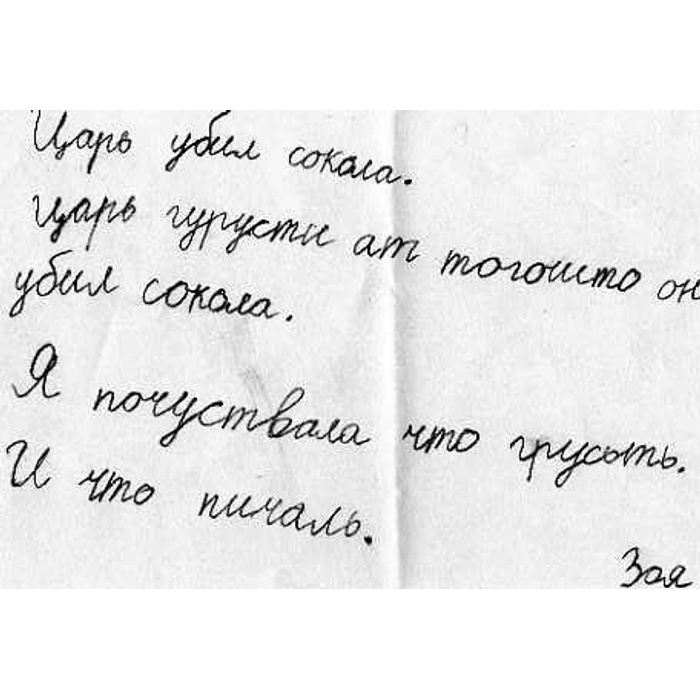 Царь убил сокола.
Царь гурусти ат тогошто он
убил сокола.
Я почуствала что грусьть.
И что пичаль.
Зоя